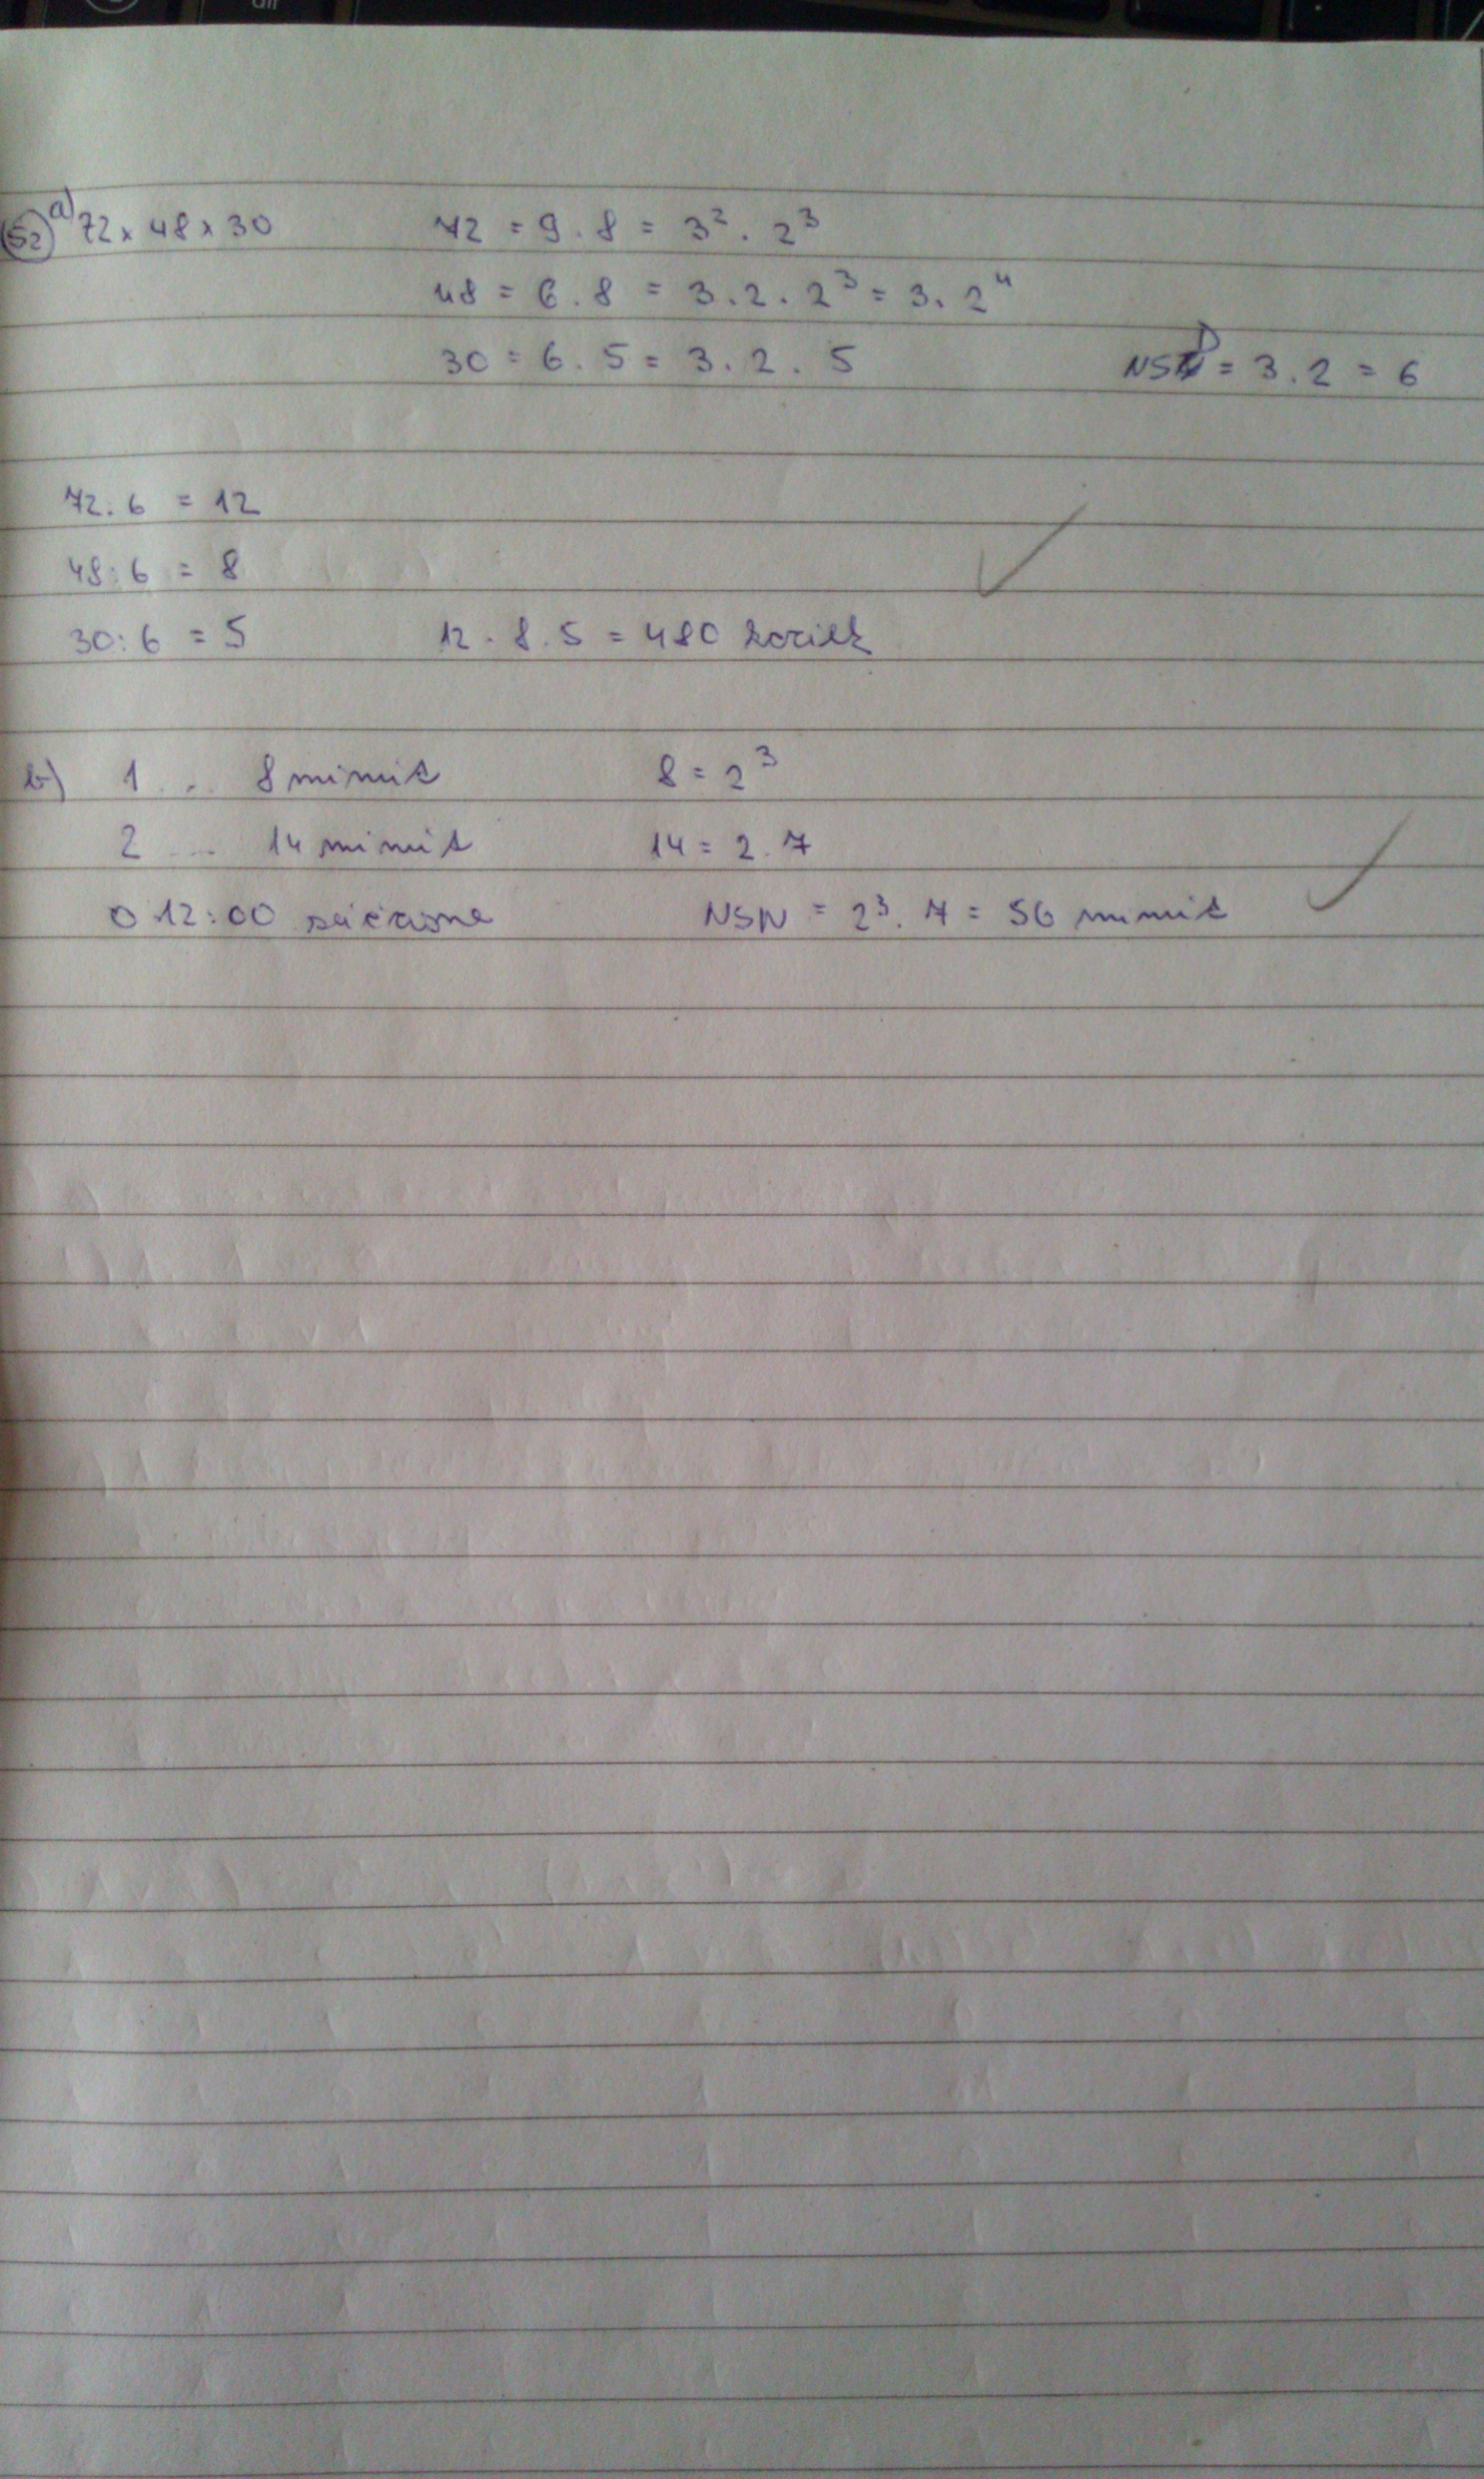 52 a) 72 x 48 x 30 72 = 9 . 8 = 3² . 2³
48 = 6 . 8 = 3 . 2 . 2³ = 3 . 2⁴
30 = 6 . 5 = 3 . 2 . 5 NSD = 3 . 2 = 6
72 : 6 = 12
48 : 6 = 8
30 : 6 = 5 12 . 8 . 5 = 480 kociek
b) 1 .. 8 minút 8 = 2³
2 ... 14 minút 14 = 2 . 7
o 12:00 súčasne NSN = 2³ . 7 = 56 minút